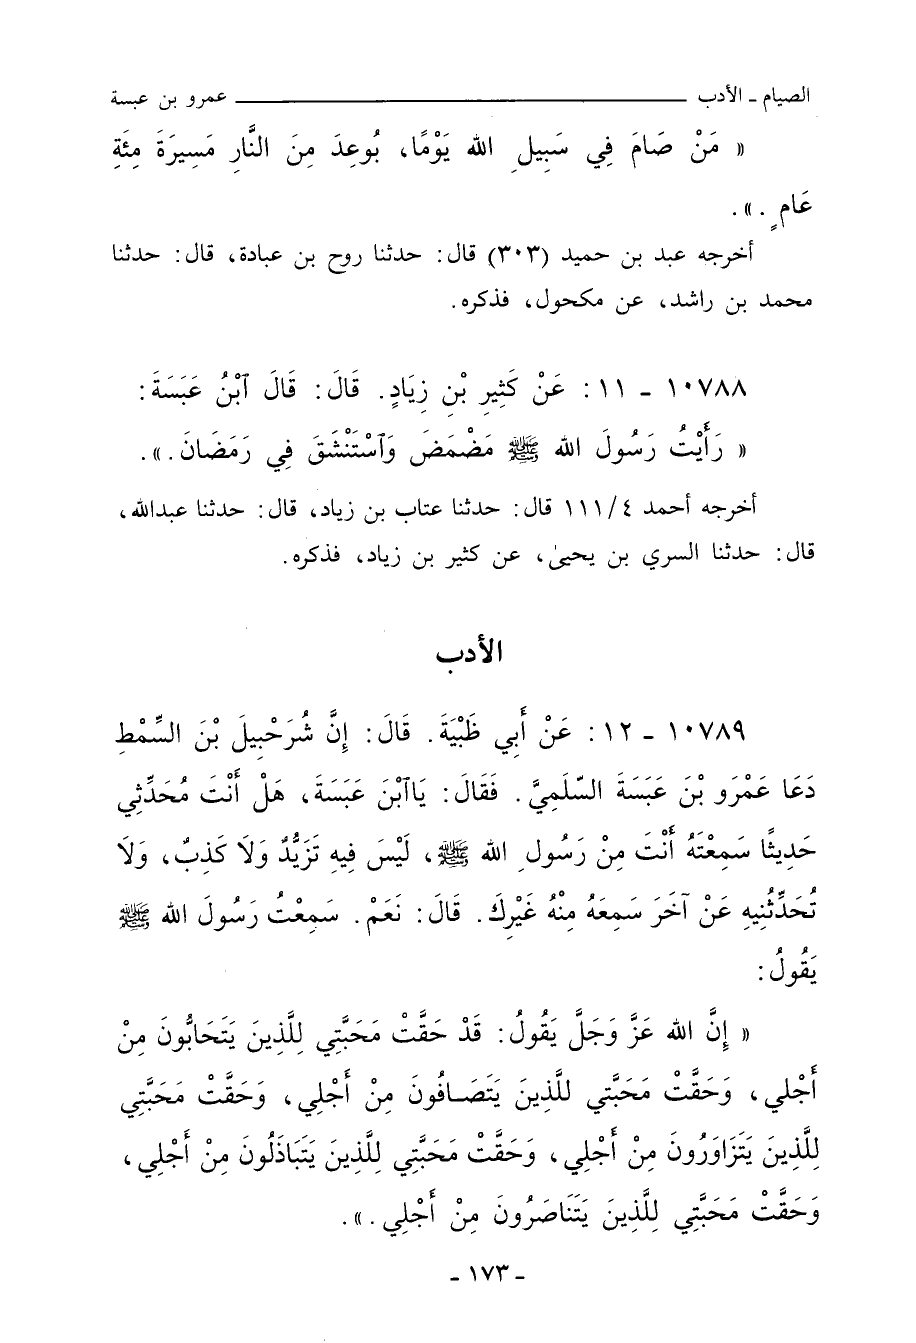 الصيام - الأدب ــــــــــــــــــــــــــــــــ عمرو بن عبسة
« مَنْ صَامَ فِي سَبِيلِ الله يَوْمًا، بُوعِدَ مِنَ النَّارِ مَسِيرَةَ مِئَةِ
عَامٍ . ».
أخرجه عبد بن حميد (٣٠٣) قال: حدثنا روح بن عبادة، قال: حدثنا
محمد بن راشد، عن مكحول، فذكره.
١٠٧٨٨ - ١١ : عَنْ كَثِيرِ بْنِ زِيَادٍ. قَالَ: قَالَ ٱبْنُ عَبَسَةَ:
« رَأَيْتُ رَسُولَ الله ﷺ مَضْمَضَ وَٱسْتَنْشَقَ فِي رَمَضَانَ . ».
أخرجه أحمد ١١١/٤ قال: حدثنا عتاب بن زياد، قال: حدثنا عبدالله،
قال: حدثنا السري بن يحيىٰ، عن كثير بن زياد، فذكره.
الأدب
١٠٧٨٩ - ١٢ : عَنْ أَبِي ظَبْيَةَ. قَالَ: إِنَّ شُرَحْبِيلَ بْنَ السِّمْطِ
دَعَا عَمْرَو بْنَ عَبَسَةَ السّلَمِيَّ. فَقَالَ: يَاٱبْنَ عَبَسَةَ، هَلْ أَنْتَ مُحَدِّثِي
حَدِيثًا سَمِعْتَهُ أَنْتَ مِنْ رَسُولِ الله ﷺ، لَيْسَ فِيهِ تَزَيُّدٌ وَلَا كَذِبٌ، وَلَا
تُحَدِّثُنِيهِ عَنْ آخَرَ سَمِعَهُ مِنْهُ غَيْرِكَ. قَالَ: نَعَمْ. سَمِعْتُ رَسُولَ الله ﷺ
يَقُولُ:
« إِنَّ الله عَزَّ وَجَلَّ يَقُولُ: قَدْ حَقَّتْ مَحَبَّتِي لِلَّذِينَ يَتَحَابُّونَ مِنْ
أَجْلِي، وَحَقَّتْ مَحَبَّتِي للَّذِينَ يَتَصَـافُونَ مِنْ أَجْلِي، وَحَقَّتْ مَحَبَّتِي
لِلَّذِينَ يَتَزَاوَرُونَ مِنْ أَجْلِي، وَحَقَّتْ مَحَبَّتِي لِلَّذِينَ يَتَبَاذَلُونَ مِنْ أَجْلِي،
وَحَقَّتْ مَحَبَّتِي لِلَّذِينَ يَتَنَاصَرُونَ مِنْ أَجْلِي. ».
- ١٧٣ -